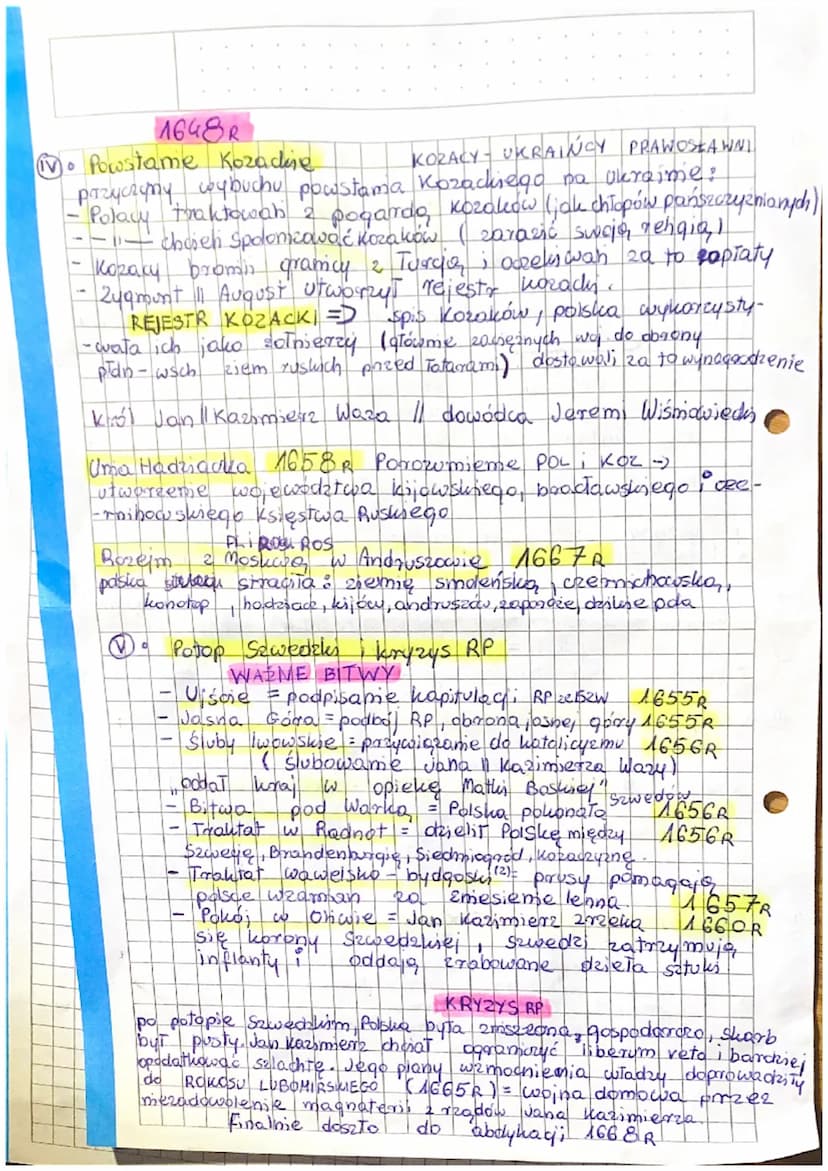 1648R
IV • Powstanie Kozackie KOZACY - UKRAIŃCY PRAWOSŁAWNI
przyczyny wybuchu powstania Kozackiego na ukrainie:
- Polacy traktowali z pogardą kozaków (jak chłopów pańszczyźnianych)
- -"- chcieli spolonizować kozaków ( zarazić swoją religią)
- Kozacy bronili granicy z Turcją i oczekiwali za to zapłaty
- Zygmunt II August utworzył rejestr kozacki.
REJESTR KOZACKI => spis kozaków, polska wykorzysty-
-wała ich jako żołnierzy (głównie zaciężnych woj. do obrony
płdn-wsch ziem ruskich przed Tatarami) dostawali za to wynagrodzenie
Król Jan II Kazimierz Waza // dowódca Jeremi Wiśniowiecki
Unia Hadziacka 1658R Porozumienie POL i KOZ ->
utworzenie województwa kijowskiego, bracławskiego i cze-
-rnihowskiego Księstwa Ruskiego
PL i ROS
Rozejm z Moskwą w Andruszowie 1667R
polska straciła: ziemię smoleńską, czernichowską,
konotop, hadziacz, kijów, andruszów, zaporoże, dzikie pola
V • Potop Szwedzki i kryzys RP
WAŻNE BITWY
- Ujście = podpisanie kapitulacji RP ze SZW 1655R
- Jasna Góra = podbój RP, obrona jasnej góry 1655R
- Śluby lwowskie = przywiązanie do katolicyzmu 1656R
( ślubowanie Jana II Kazimierza Wazy)
"oddał kraj w opiekę Matki Boskiej"
szwedów
- Bitwa pod Warką = Polska pokonała 1656R
- Traktat w Radnot = dzielił Polskę między 1656R
Szwecję, Brandenburgię, Siedmiogród, Kozaczyznę.
- Traktat wawelsko-bydgoski (2) = prusy pomagają
polsce wzamian za zniesienie lenna. 1657R
- Pokój w Oliwie = Jan Kazimierz zrzeka 1660R
się korony szwedzkiej, szwedzi zatrzymują
inflanty i oddają zrabowane dzieła sztuki
KRYZYS RP
po potopie szwedzkim, Polska była zniszczona, gospodarczo, skarb
był pusty. Jan Kazimierz chciał ograniczyć liberum veto i bardziej
opodatkować szlachtę. Jego plany wzmocnienia władzy doprowadziły
do ROKOSU LUBOMIRSKIEGO (1665R) = wojna domowa przez
niezadowolenie magnaterii z rządów Jana Kazimierza.
Finalnie doszło do abdykacji 1668R